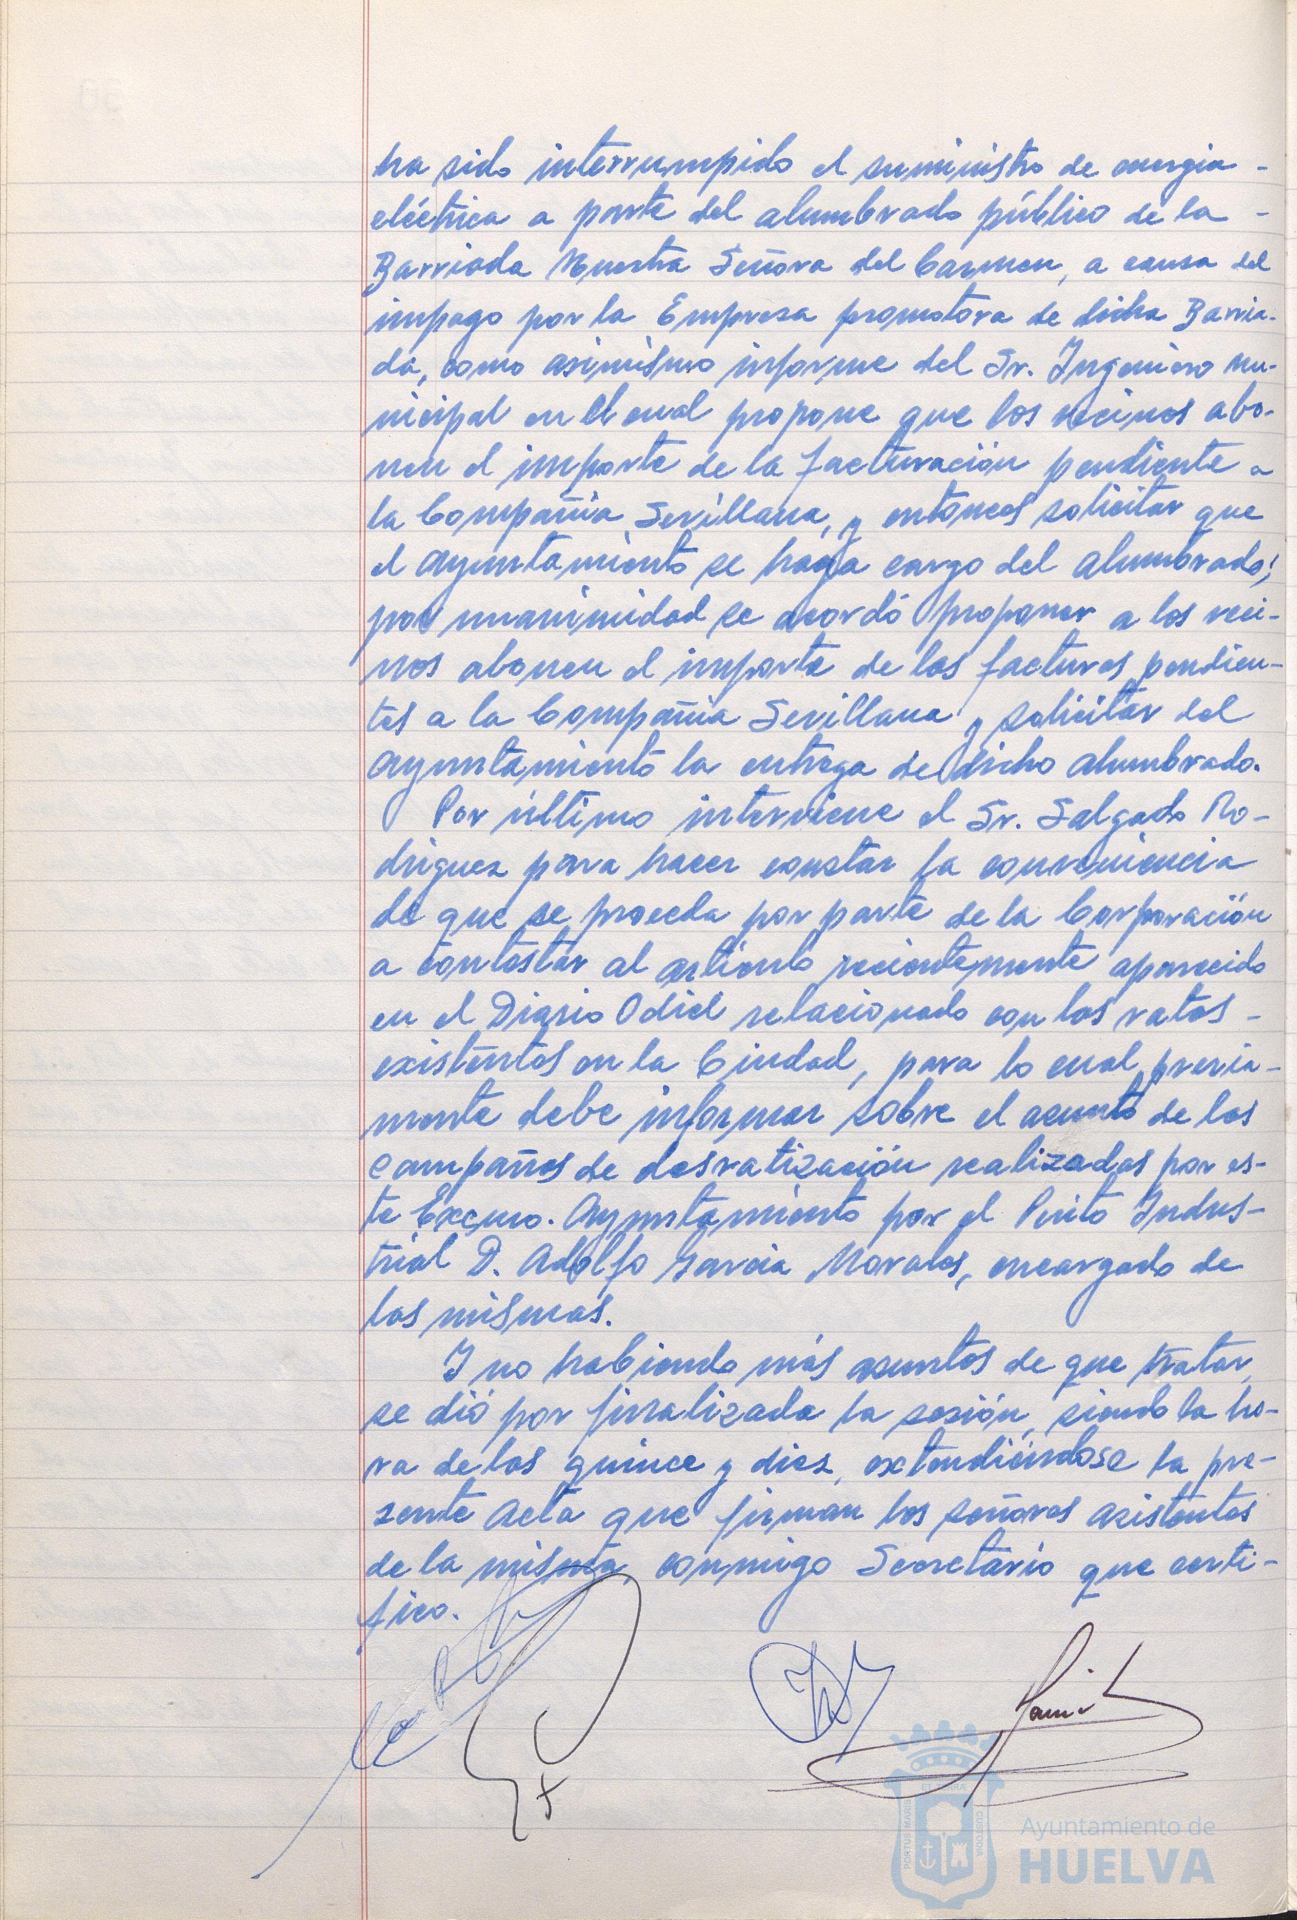 ha sido interrumpido el suministro de energia -
eléctrica a parte del alumbrado público de la -
Barriada Nuestra Señora del Carmen, a causa del
impago por la Empresa promotora de dicha Barria-
da, como asimismo informe del Sr. Ingeniero mu-
nicipal en el cual propone que los vecinos abo-
nen el importe de la facturación pendiente a
la Compañia Sevillana, y entonces solicitar que
el Ayuntamiento se haga cargo del alumbrado;
por unanimidad se acordó proponer a los veci-
nos abonen el importe de las facturas pendien-
tes a la Compañia Sevillana y solicitar del
Ayuntamiento la entrega de dicho alumbrado.
Por último interviene el Sr. Salgado Ro-
driguez para hacer constar la conveniencia
de que se proceda por parte de la Corporación
a contestar al articulo recientemente aparecido
en el Diario Odiel relacionado con las ratas -
existentes en la Ciudad, para lo cual previa-
mente debe informar sobre el asunto de las
campañas de desratización realizadas por es-
te Excmo. Ayuntamiento por el Perito Indus-
trial D. Adolfo Garcia Morales, encargado de
las mismas.
Y no habiendo más asuntos de que tratar,
se dió por finalizada la sesión, siendo la ho-
ra de las quince y diez, extendiéndose la pre-
sente Acta que firman los señores asistentes
de la misma, conmigo Secretario que certi-
fico.
PORTUS MARIS ET TERRAE CUSTODIA
Ayuntamiento de
HUELVA